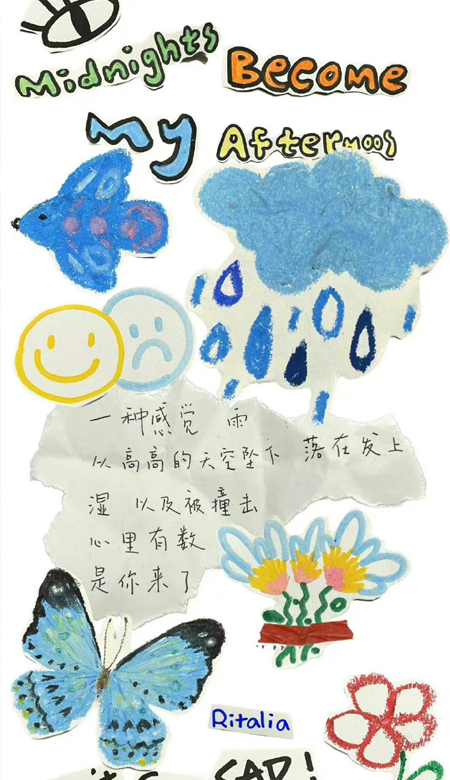 Midnights Become
My Afternoos
一种感觉 雨
以高高的天空坠下 落在发上
湿 以及被撞击
心里有数
是你来了
Ritalia
SAD!